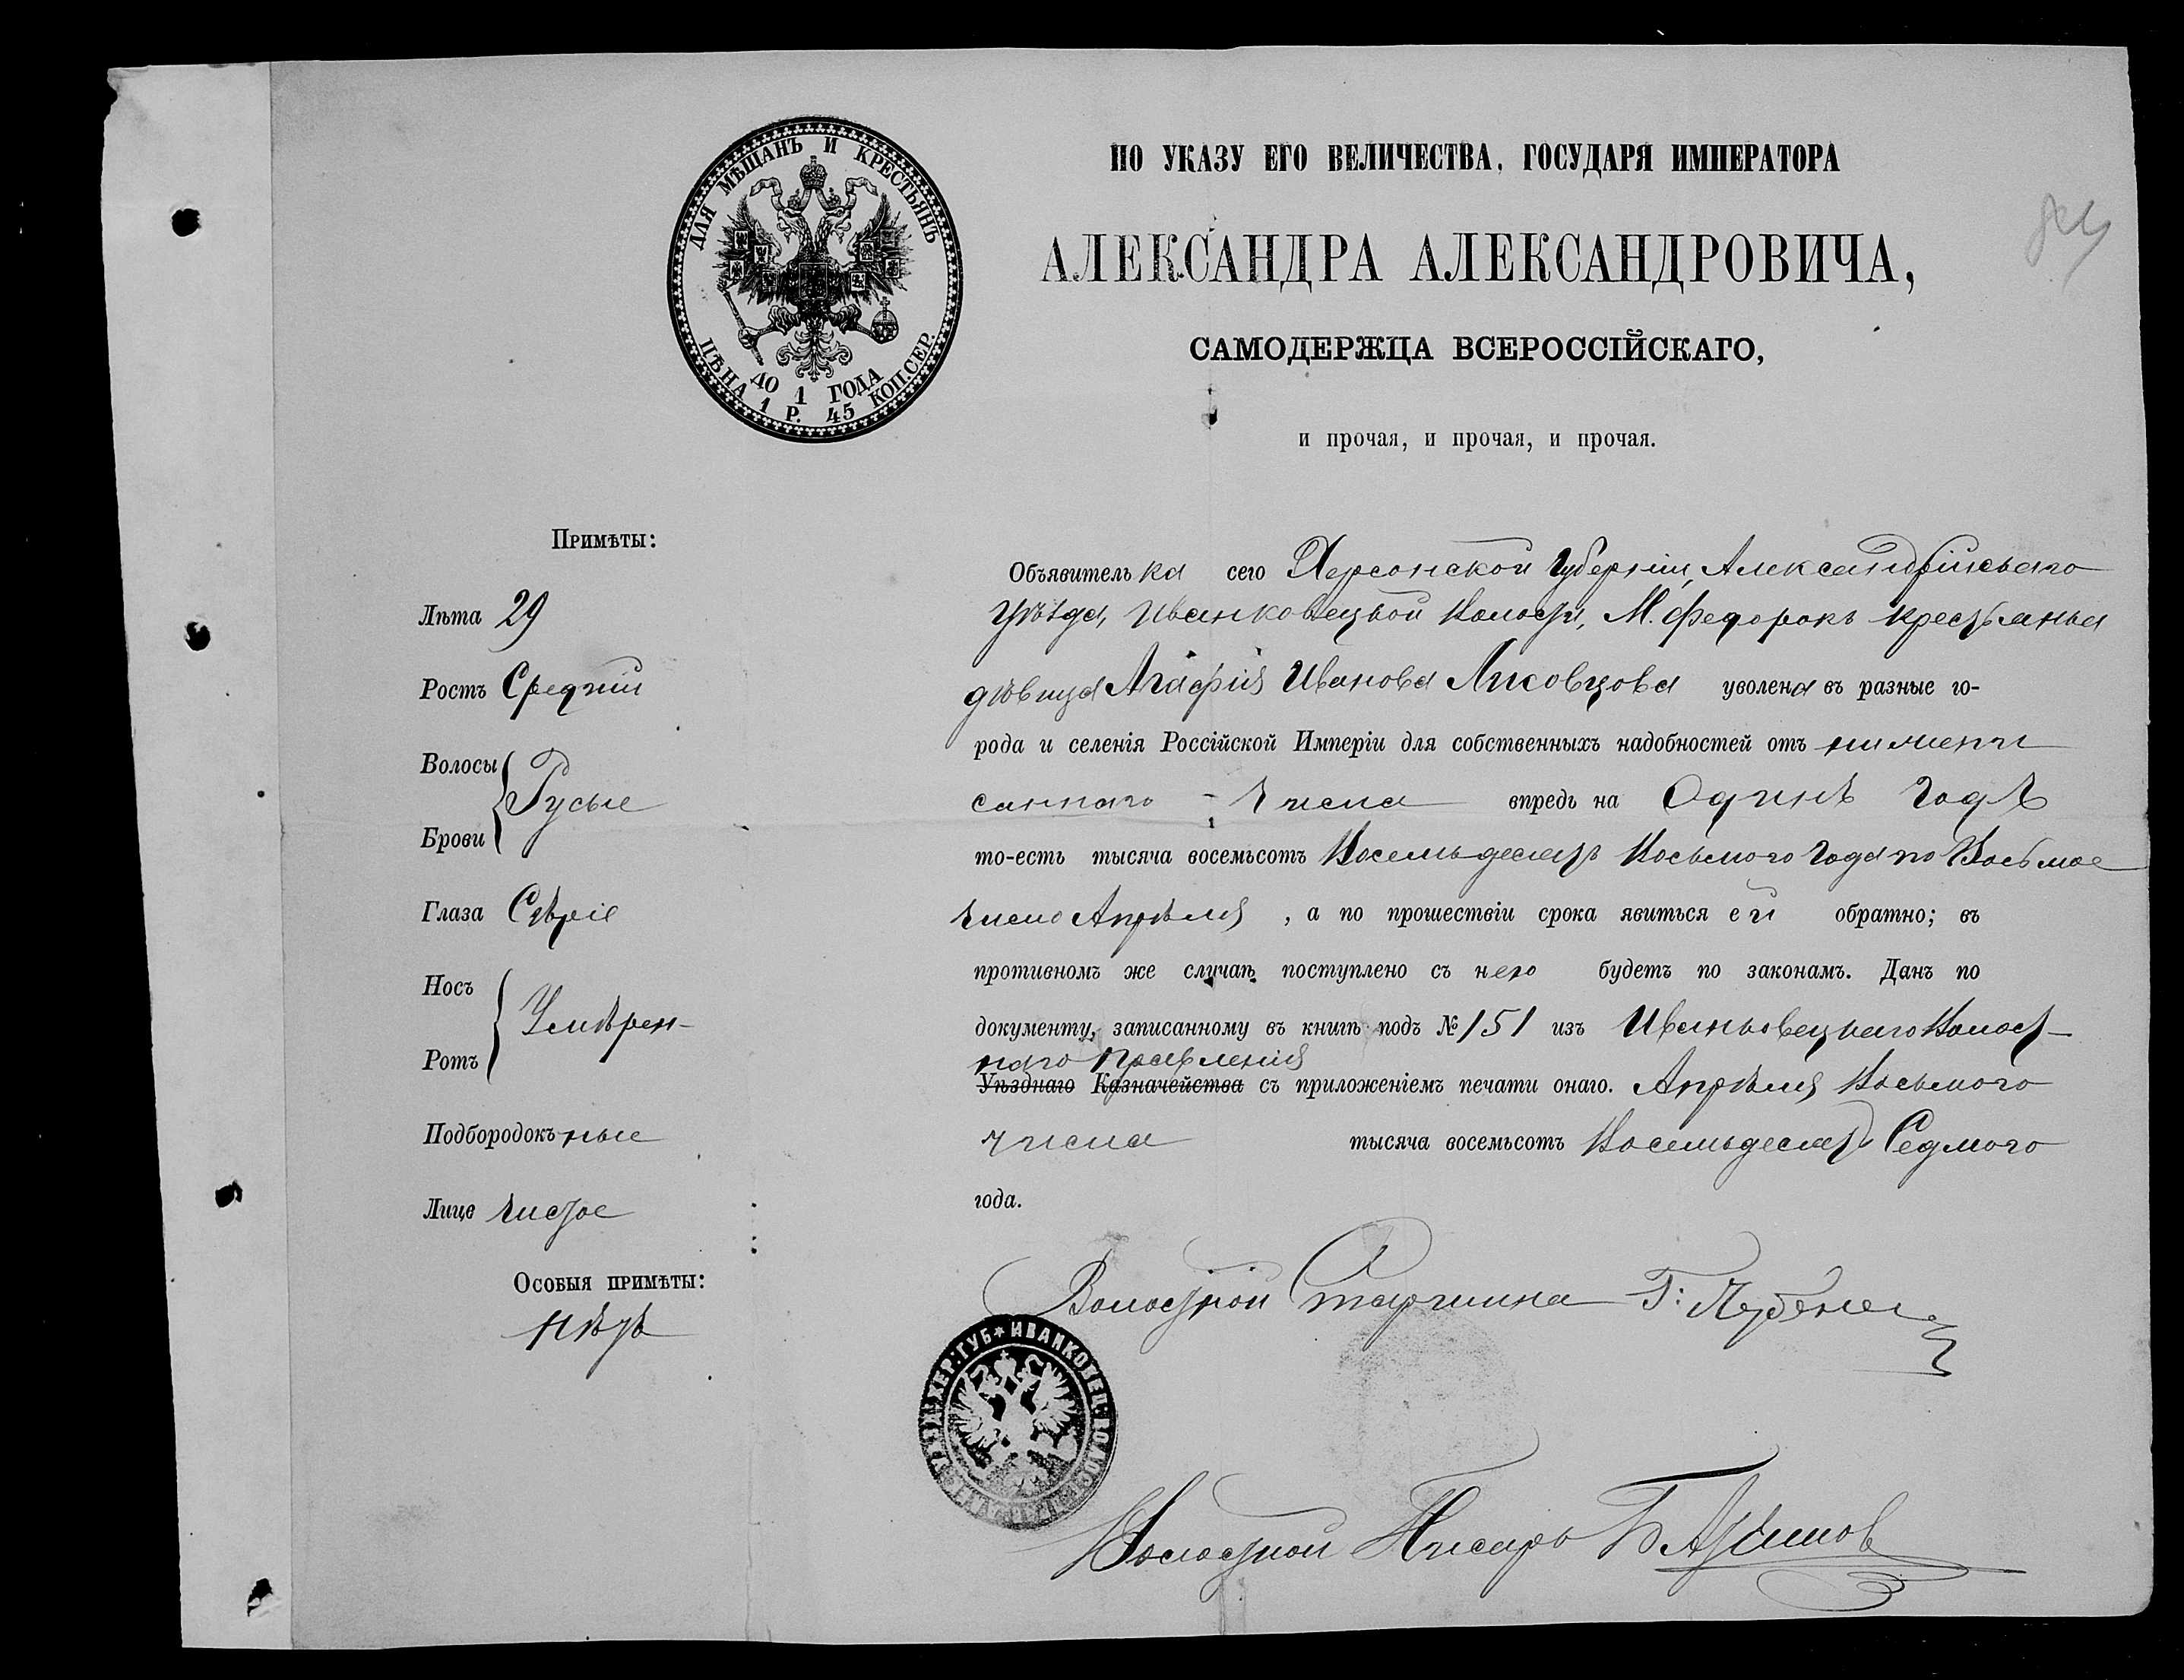 ДЛЯ МѢЩАНЪ И КРЕСТЬЯНЪ
ДО 1 ГОДА
ЦѢНА 1 Р. 45 КОП. СЕР.
ПО УКАЗУ ЕГО ВЕЛИЧЕСТВА, ГОСУДАРЯ ИМПЕРАТОРА
АЛЕКСАНДРА АЛЕКСАНДРОВИЧА,
САМОДЕРЖЦА ВСЕРОССІЙСКАГО,
и прочая, и прочая, и прочая.
Примѣты:
Лѣта 29
Ростъ Средній
Волосы
Русые
Брови
Глаза Сѣріе
Носъ
Умѣрен-
Ротъ
Подбородокъ ные
Лице чистое
Особыя примѣты:
нѣтъ
Объявителька сего Херсонской Губерніи, Александрійскаго
Уѣзда, Иванковецкой Волости, М. Федорокъ крестьянка
дѣвица Агафія Иванова Лисовцова уволена въ разные го-
рода и селенія Россійской Имперіи для собственныхъ надобностей отъ нижепи
саннаго числа впредь на Одинъ Годъ
то-есть тысяча восемьсотъ Восемьдесятъ Восьмого Года по Восьмое
число Апрѣля, а по прошествіи срока явиться ей обратно; въ
противномъ же случаѣ поступлено съ нею будетъ по законамъ. Данъ по
документу, записанному въ книгѣ подъ № 151 изъ Иваньовецкаго Волост-
наго Правленія
Уѣзднаго Казначейства съ приложеніемъ печати онаго. Апрѣля Восьмого
числа тысяча восемьсотъ Восемьдесятъ Седмого
года.
Волостной Старшина Г:
ХЕР: ГУБ * ИВАНКОВЕЦ: ВОЛОС
Волостной Писарь